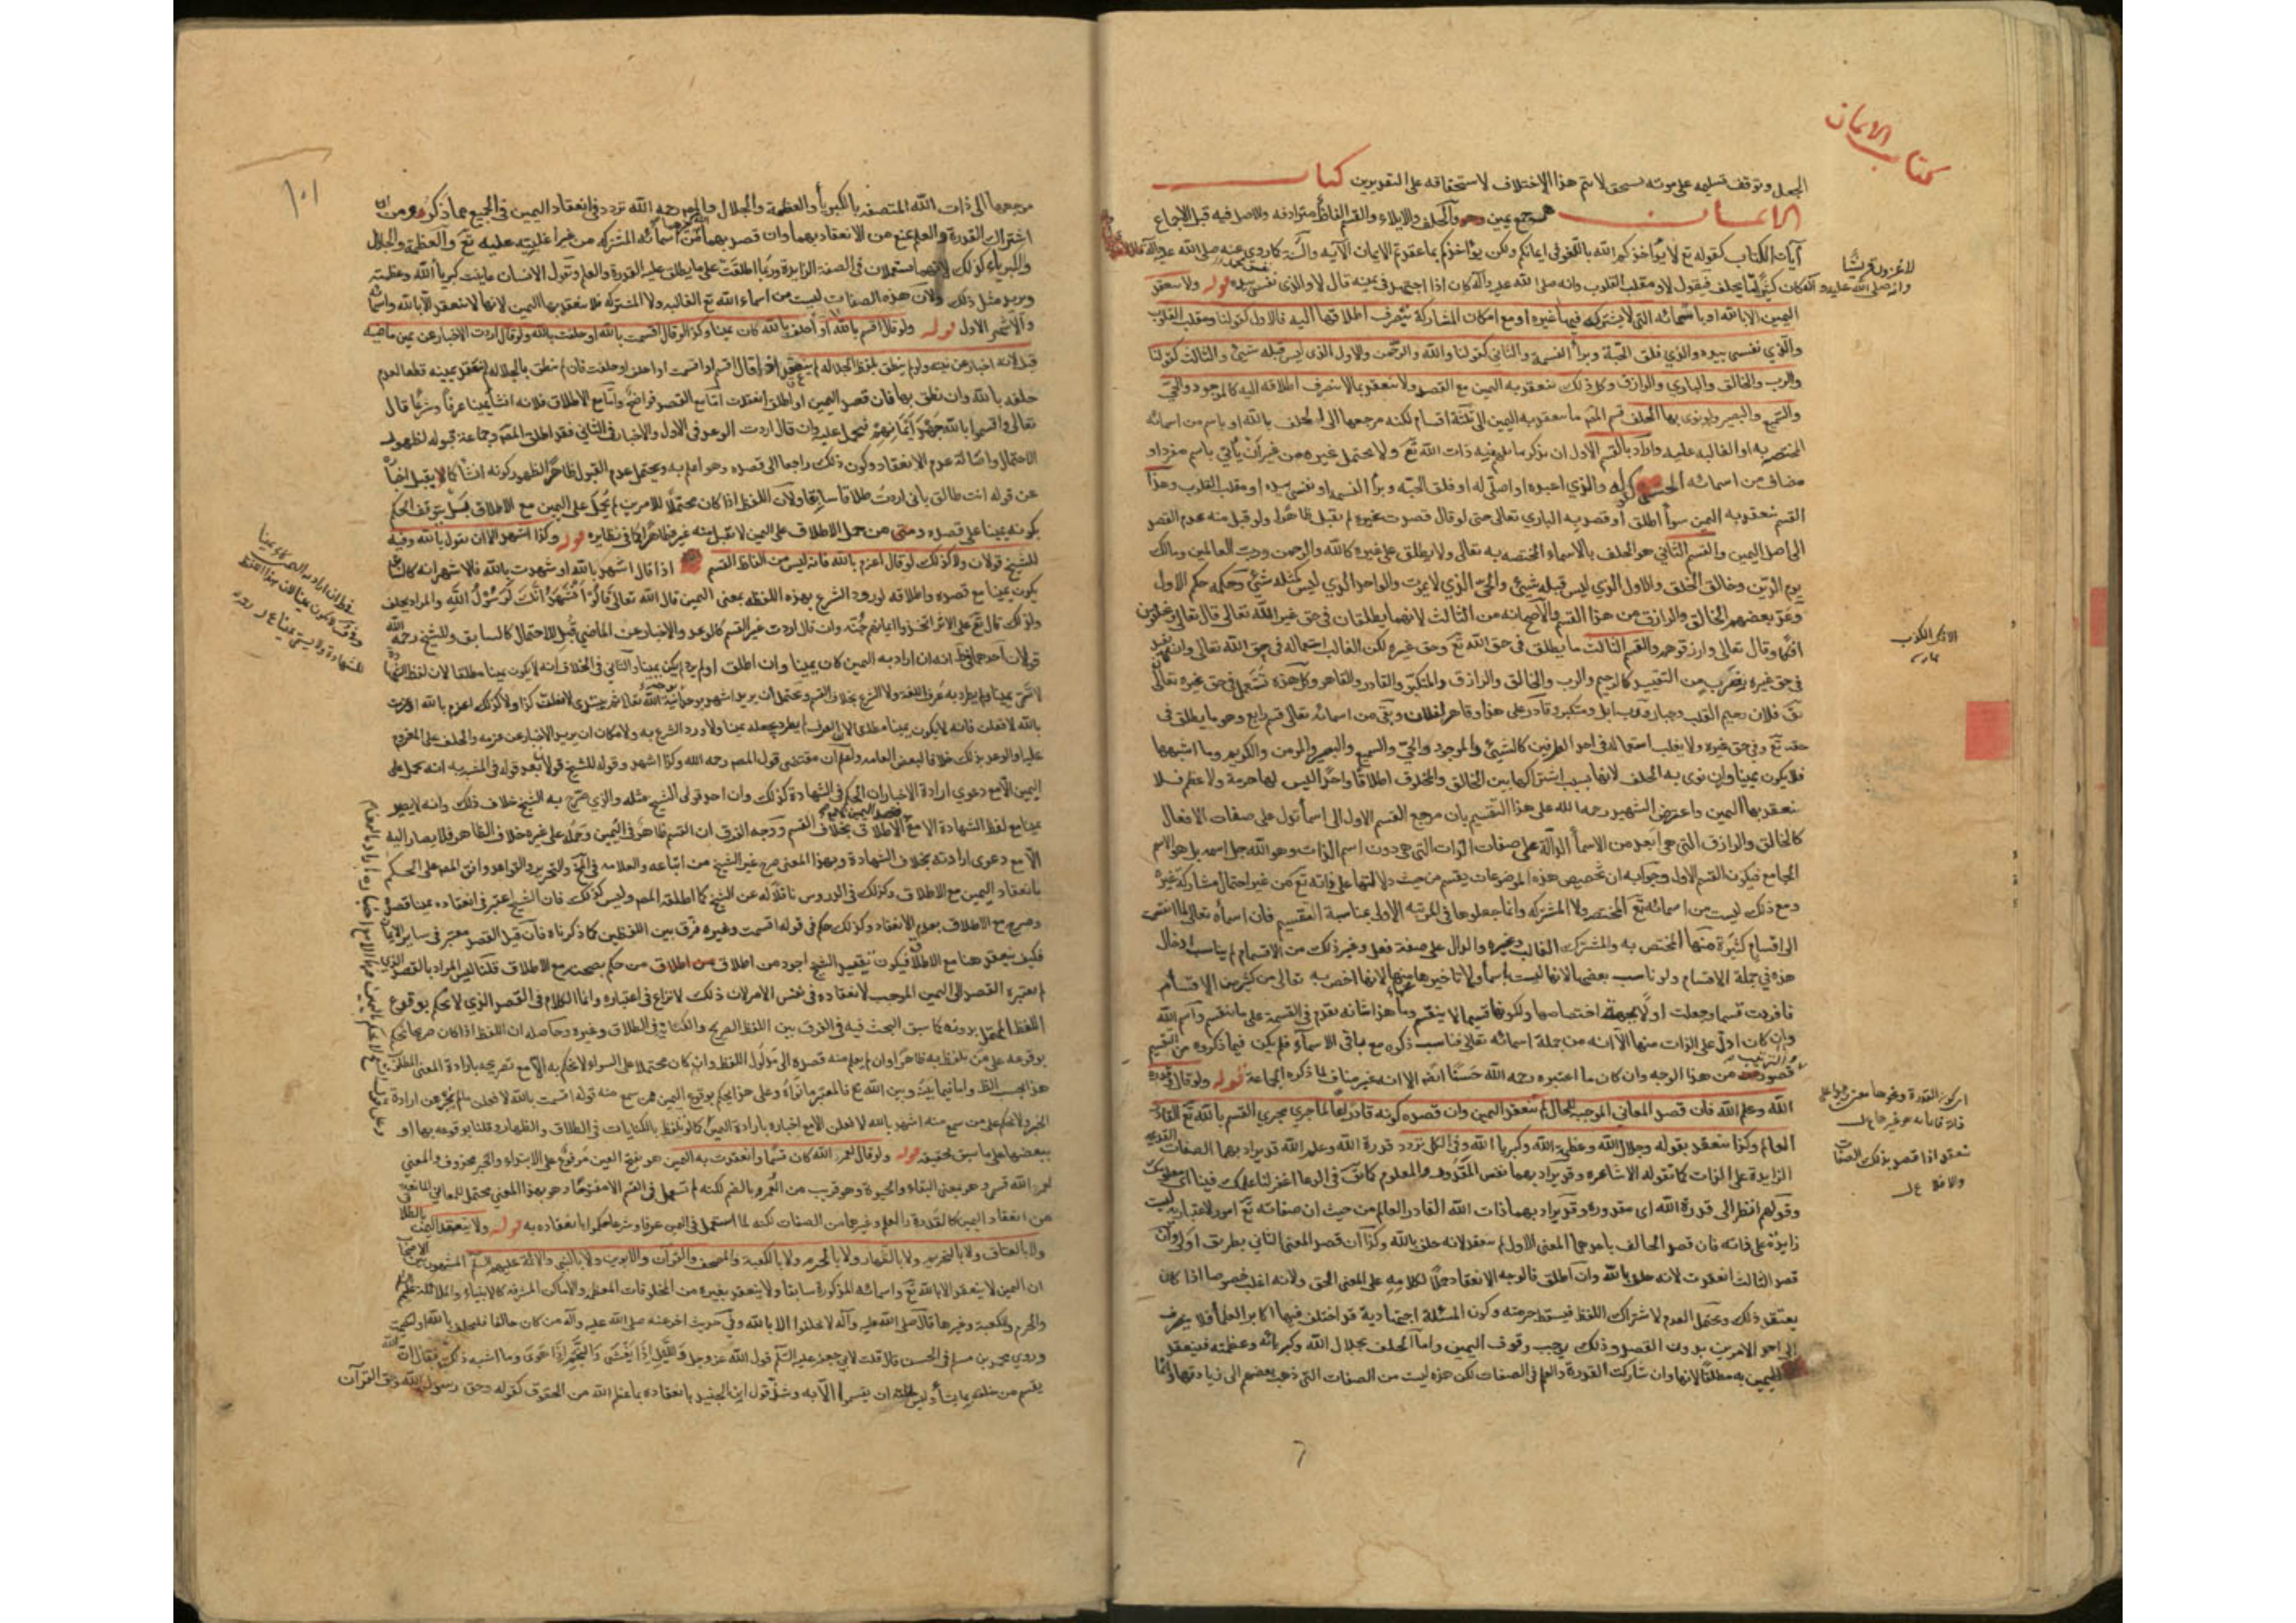 كتاب الايمان
الجعل وتوقف تسليمه على موته يستحق لا يتم هذا الاختلاف لاستحقاقه على التقديرين كتاب
الايمان جمع يمين وهو والحلف والايلاء والقسم الفاظ مترادفة والاصل فيه قبل الاجماع
آيات الكتاب كقوله تع لا يؤاخذكم الله باللغو في ايمانكم ولكن يؤاخذكم بما عقدتم الايمان الآية والسنة كما روي عنه صلى الله عليه وآله انه قال والله
لاغزون قريشا
وانه صلى الله عليه وآله كان كثيرا ما يحلف فيقول لا ومقلب القلوب وانه صلى الله عليه وآله كان اذا اجتهد في يمينه قال لا والذي نفس محمد بيده قوله ولا ينعقد
اليمين الا بالله او باسمائه التي لا يشركه فيها غيره او مع امكان المشاركة ينصرف اطلاقها اليه فالاول كقولنا ومقلب القلوب
والذي نفسي بيده والذي فلق الحبة وبرأ النسمة والثاني كقولنا والله والرحمن والاول الذي ليس قبله شيئ والثالث كقولنا
والرب والخالق والباري والرازق وكل ذلك ينعقد به اليمين مع القصد ولا ينعقد بما لا ينصرف اطلاقه اليه كالموجود والحي
والسميع والبصير ولو نوى بها الحلف قسم المصـ ما ينعقد به اليمين الى ثلثة اقسام لكنه مرجعها الى الحلف بالله او باسم من اسمائه
المختصة به او الغالبة عليه واراد بالقسم الاول ان يذكر ما يفهم منه ذات الله تع ولا يحتمل غيره من غير ان يأتي باسم مفرد او
مضاف من اسمائه الحسنى كقوله والذي اعبده او اصلي له او فلق الحبة وبرأ النسمة او نفسي بيده او مقلب القلوب وهذا
القسم ينعقد به اليمين سوأ اطلق او قصد به الباري تعالى حتى لو قال قصدت غيره لم يقبل ظاهرا ولو قبل منه عدم القصد
الى اصل اليمين والقسم الثاني هو الحلف بالاسماء المختصة به تعالى ولا يطلق على غيره كالله والرحمن ورب العالمين ومالك
يوم الدين وخالق الخلق والاول الذي ليس قبله شيئ والحي الذي لا يموت والواحد الذي ليس كمثله شيئ وحكمه حكم الاول
وعد بعضهم الخالق والرازق من هذا القسم والاصح انه من الثالث لانهما يطلقان في حق غير الله تعالى قال تعالى وتخلقون
افكا وقال تعالى وارزقوهم والقسم الثالث ما يطلق في حق الله تع وحق غيره لكن الغالب استعماله في حق الله تعالى وان
في حق غيره بضرب من التقييد كالرحيم والرب والخالق والرازق والمتكبر والقادر والقاهر وكل هذه تستعمل في حق غيره تعالى
يق فلان رحيم القلب وجبار ورب ابل ومتكبر وقادر على هذا وقاهر لفلان وبقي من اسمائه تعالى قسم رابع وهو ما يطلق في
حقه تع وفي حق غيره ولا يغلب استعماله في احد الطرفين كالشيئ والموجود والحي والسميع والبصير والمؤمن والكريم وما اشبهها
فلا يكون يمينا وان نوى به الحلف لانها بسبب اشتراكها بين الخالق والمخلوق اطلاقا واحدا ليس لها حرمة ولا عظم فلا
ينعقد بها اليمين واعترض الشهيد رحمه الله على هذا التقسيم بان مرجع القسم الاول الى اسمأ تدل على صفات الافعال
كالخالق والرازق التي هي ابعد من الاسمأ الدالة على صفات الذات التي هي دون اسم الذات وهو الله جل اسمه بل هو الاسم
الجامع فيكون القسم الاول وجوابه ان تخصيص هذه الموضوعات بقسم من حيث دلالتها على ذاته تع من غير احتمال مشاركة غيره
ومع ذلك ليست من اسمائه تع المختصة ولا المشتركة وانما جعلوها في المرتبة الاولى لمناسبة التقسيم فان اسماءه تعالى لما انقسمت
الى اقسام كثيرة منها المختص به والمشترك الغالب وغيره والدال على صفة فعل وغير ذلك من الاقسام لم يناسب ادخال
هذه في جملة الاقسام ولو ناسب بعضها لانها ليست اسمأ ولا تاخيرها عنها لانها اخص به تعالى من كثير من الاقسام
فافردت قسما وجعلت اولا لجهة اختصاصها ولكونها قسيما لا ينقسم وما هذا شانه يقدم في القسمة على ما ينقسم واسم الله
وان كان ادل على الذات منها الا انه من جملة اسمائه تعالى فناسب ذكره مع باقي الاسمآء فلم يكن فيما ذكروه من التقسيم
قصور من هذا الوجه وان كان ما اعتبره رحمه الله حسنا ايضا الا انه غير مناف لما ذكره الجماعة قوله ولو قال وقدرة
الله وعلم الله فان قصد المعاني الموجبة للحال لم ينعقد اليمين وان قصد كونه قادرا عالما جرى مجرى القسم بالله تع القادر
العالم وكذا ينعقد بقوله وجلال الله وعظمة الله وكبرياء الله وفي الكل تردد قدرة الله وعلم الله قد يراد بهما الصفات القديمة
الزايدة على الذات كما تقوله الاشاعرة وقد يراد بهما نفس المقدور والمعلوم كما يق في الدعا اغفر لنا علمك فينا اي معلومك
وقولهم انظر الى قدرة الله اي مقدوره وقد يراد بهما ذات الله القادر العالم من حيث ان صفاته تع امور اعتبارية ليست
زايدة على ذاته فان قصد الحالف باحدهما المعنى الاول لم ينعقد لانه حلف بغير الله وكذا ان قصد المعنى الثاني بطريق اولى وان
قصد الثالث انعقدت لانه حلف بالله وان اطلق فالوجه الانعقاد حملا لكلامه على المعنى الحق ولانه اغلب خصوصا اذا كان
يعتقد ذلك ويحتمل العدم لاشتراك اللفظ فيسقط حرمته وكون المسئلة اجتهادية قد اختلف فيها اكابر العلمأ فلا يصرف
الى احد الامرين بدون القصد وذلك يوجب وقوف اليمين واما الحلف بجلال الله وكبريائه وعظمته فينعقد
اليمين به مطلقا لانها وان شاركت القدرة والعلم في الصفات لكن هذه ليست من الصفات التي ذهب بعضهم الى زيادتها وانما
١٠١
مرجعها الى ذات الله المتصفة بالكبريأ والعظمة والجلال والمصـ رحمه الله تردد في انعقاد اليمين في الجميع مما ذكر ومن ان
اشتراك القدرة والعلم يمنع من الانعقاد بهما وان قصد بهما
والكبرياء كذلك لانهما يستعملان في الصفة الزايدة وربما اطلقت على ما يطلق عليه القدرة والعلم ويقول الانسان عاينت كبريأ الله وعظمته
ويريد مثل ذلك ولان هذه الصفات ليست من اسماء الله تع الغالبة ولا المشتركة فلا ينعقد بها اليمين لانها لا تنعقد الا بالله واسمائه
والاشهر الاول قوله ولو قال اقسم بالله او احلف بالله كان يمينا وكذا لو قال اقسمت بالله او حلفت بالله ولو قال اردت الاخبار عن يمين ماضية
قبل لانه اخبار عن نيته ولو لم ينطق بلفظ الجلالة لم ينعقد اذا قال اقسم او اقسمت او احلف او حلفت فان لم ينطق بالجلالة لم تنعقد يمينه قطعا لعدم
حلفه بالله وان نطق بها فان قصد اليمين او اطلق انعقدت اما مع القصد فواضح واما مع الاطلاق فلانه انشأ يمينا عرفا وشرعا قال
تعالى واقسموا بالله جهد ايمانهم فيحمل عليه وان قال اردت الوعد في الاول والاخبار في الثاني فقد اطلق المصـ وجماعة قبوله لظهور
الاحتمال واصالة عدم الانعقاد وكون ذلك راجعا الى قصده وهو اعلم به ويحتمل عدم القبول ظاهرا لظهور كونه انشأ كما لا يقبل اخباره
عن قوله انت طالق باني اردت طلاقا سابقا ولان اللفظ اذا كان محتملا للامرين لم يحمل على اليمين مع الاطلاق بل يتوقف الحكم
بكونه يمينا على قصده ومتى حمل الاطلاق على اليمين لا تقبل منه غيره ظاهرا كما في نظايره قوله وكذا اشهد الا ان يقول بالله وفيه
للشيخ قولان ولا كذلك لو قال اعزم بالله فانه ليس من الفاظ القسم اذا قال اشهد بالله او شهدت بالله فالاشهر انه كالسابق
يكون يمينا مع قصده واطلاقه لورود الشرع بهذه اللفظة بمعنى اليمين قال الله تعالى قالوا نشهد انك لرسول الله والمراد يحلف
ولذلك قال تع على الاثر اتخذوا ايمانهم جنة وان قال اردت غير القسم كالوعد والاخبار عن الماضي قبل للاحتمال كالسابق وللشيخ رحمه الله
قولان احدهما في ط انه ان اراد به اليمين كان يمينا وان اطلق او لم يرد لم يكن يمينا والثاني في الخلاف انه لا يكون يمينا مطلقا لان لفظ الشهادة
بالله لافعلن فانه لا يكون يمينا مطلقا لان العرف لم يطرد بجعله يمينا ولا ورد الشرع به ولامكان ان يريد الاخبار عن عزمه والحلف على المعزوم
عليه او الوعد بذلك خلافا لبعض العامة واعلم ان مقتضى قول المصـ رحمه الله وكذا اشهد وقوله للشيخ قولان بعد قوله في المشبه به انه يحمل على
اليمين الا مع دعوى ارادة الاخبار ان الحكم في الشهادة كذلك وان احد قولي الشيخ مثله والذي صرح به الشيخ خلاف ذلك وانه لا يصير
يمينا مع لفظ الشهادة الا مع قصد اليمين لا مع الاطلاق بخلاف القسم ووجه الفرق ان القسم ظاهر في اليمين وحمله على غيره خلاف الظاهر فلا يصار اليه
الا مع دعوى ارادته بخلاف الشهادة وبهذا المعنى صرح غير الشيخ من اتباعه والعلامة في والتحرير والقواعد وافق المصـ على الحكم
بانعقاد اليمين مع الاطلاق وكذلك في الدروس ناقلا له عن الشيخ كما اطلقه المصـ وليس كذلك فان الشيخ اعتبر في انعقاده يمينا قصده
وصرح مع الاطلاق بعدم الانعقاد وكذلك حكم في قوله اقسمت وغيره فرق بين اللفظين كما ذكرناه فان قيل القصد معتبر في ساير الايمان
فكيف ينعقد هنا مع الاطلاق فيكون تقييد الشيخ اجود من اطلاق من حكم بصحته مع الاطلاق قلنا ليس المراد بالقصد الذي
لم يعتبره القصد الى اليمين الموجب لانعقاده في نفس الامر لان ذلك لا نزاع في اعتباره وانما الكلام في القصد الذي لا يحكم بوقوع
اللفظ المحتمل بدونه كما سبق البحث فيه في الفرق بين اللفظ الصريح والكناية في الطلاق وغيره وحاصله ان اللفظ اذا كان صريحا يحكم
بوقوعه على من تلفظ به ظاهرا وان لم يعلم منه قصده الى مدلول اللفظ وان كان محتملا على السواء لا يحكم به الا مع تصريحه بارادة المعنى المطلوب
هذا بحسب الظ واما فيما بينه وبين الله تع فالمعتبر ما نواه وعلى هذا يحكم بوقوع اليمين ممن سمع منه قوله اقسمت بالله لافعلن ما لم يخبر عن ارادة
الخبر ولا يحكم على من سمع منه اشهد بالله لافعلن الا مع اخباره بارادة اليمين كالمتلفظ بالكنايات في الطلاق والظهار وقلنا بوقوعه بها او
ببعضها على ما سبق تحقيقه قوله ولو قال لعمر الله كان قسما وانعقدت به اليمين هو بفتح العين مرفوع على الابتداء والخبر محذوف والمعنى
لعمر الله قسمي وهو بمعنى البقاء والحيوة وهو قريب من العُمر بالضم لكنه لم يستعمل في القسم الا مفتوحا وهو بهذا المعنى محتمل للمعاني المانعة
من انعقاد اليمين كالقدرة والعلم وغيرهما من الصفات لكنه لما استعمل في اليمين عرفا وشرعا حكموا بانعقاده به قوله ولا ينعقد اليمين بالطلاق
ولا بالعتاق ولا بالتحريم ولا بالظهار ولا بالحرم ولا بالكعبة والمصحف والقرآن والابوين ولا بالنبي والائمة عليهم السلم المشهور بين الاصحاب
ان اليمين لا ينعقد الا بالله تع واسمائه المذكورة سابقا ولا ينعقد بغيره من المخلوقات المعظمة والاماكن المشرفة كالانبياء والملائكة
والحرم والكعبة وغيرها قال صلى الله عليه وآله لا تحلفوا الا بالله وفي حديث اخر عنه صلى الله عليه وآله من كان حالفا فليحلف بالله او ليصمت
وروى محمد بن مسلم في الحسن قال قلت لابي جعفر عليه السلم قول الله عز وجل والليل اذا يغشى والنجم اذا هوى وما اشبه ذلك فقال ان الله
يقسم من خلقه بما يشأ وليس لخلقه ان يقسموا الا به وشذ قول ابن الجنيد بانعقاده بما عظم الله من الحقوق كقوله وحق رسول الله وحق القرآن